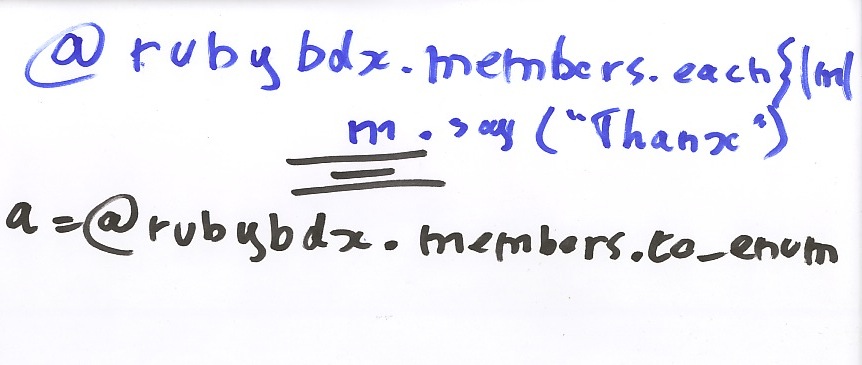 @rubybdx.members.each{|m|
m.say("Thanx")
a=@rubybdx.members.to_enum